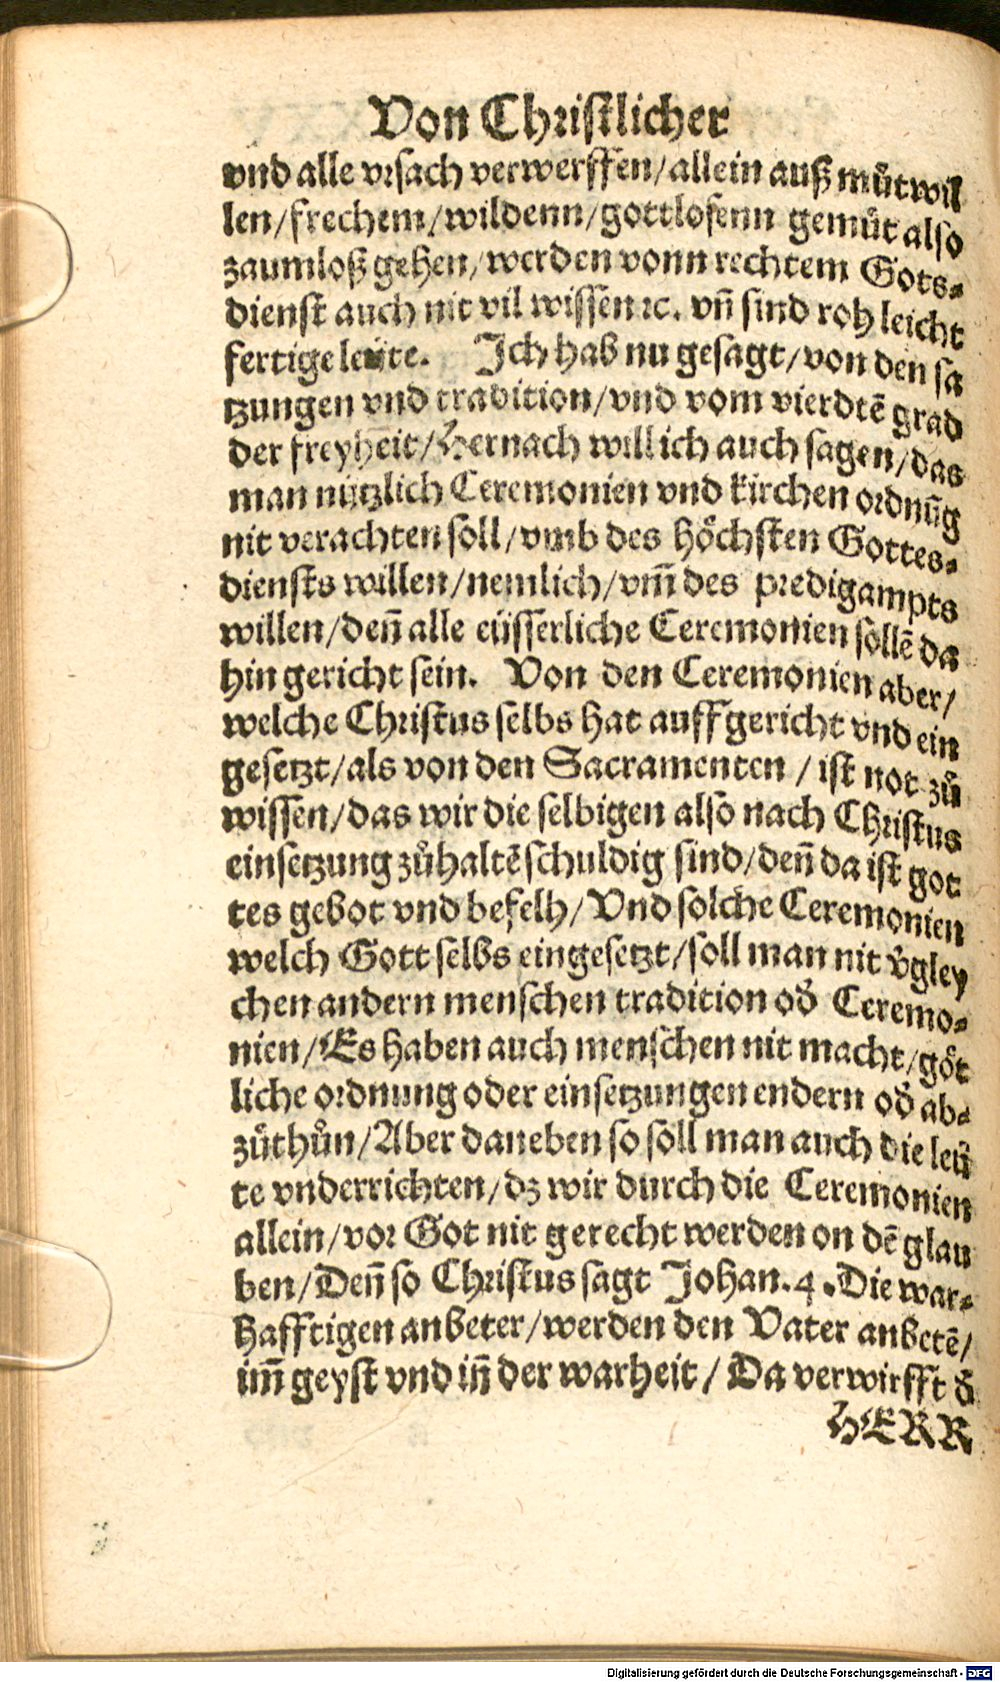 Von Christlicher
vnd alle vrsach verwerffen/allein auß můtwil
len/frechem/wildenn/gottlosenn gemůt also
zaumloß gehen/werden vonn rechtem Gots-
dienst auch nit vil wissen ꝛc. vn̄ sind roh leicht
fertige leute. Ich hab nu gesagt/von den sa
tzungen vnd tradition/vnd vom vierdtē grad
der freyheit/Hernach will ich auch sagen/das
man nützlich Ceremonien vnd kirchen ordnūg
nit verachten soll/vmb des höchsten Gottes-
diensts willen/nemlich/vm̄ des predigampts
willen/den̄ alle eüsserliche Ceremonien sollē da
hin gericht sein. Von den Ceremonien aber/
welche Christus selbs hat auffgericht vnd ein
gesetzt/als von den Sacramenten / ist not zů
wissen/das wir die selbigen also nach Christus
einsetzung zůhaltē schuldig sind/den̄ da ist got
tes gebot vnd befelh/Vnd solche Ceremonien
welch Gott selbs eingesetzt/soll man nit v̊gley
chen andern menschen tradition od̕ Ceremo-
nien/Es haben auch menschen nit macht/göt
liche ordnung oder einsetzungen endern od̕ ab-
zůthůn/Aber daneben so soll man auch die leü
te vnderrichten/dz wir durch die Ceremonien
allein/vor Got nit gerecht werden on dē glau
ben/Den̄ so Christus sagt Johan. 4. Die war-
hafftigen anbeter/werden den Vater anbetē/
im̄ geyst vnd in̄ der warheit / Da verwirfft d̕
HERR
Digitalisierung gefördert durch die Deutsche Forschungsgemeinschaft - DFG